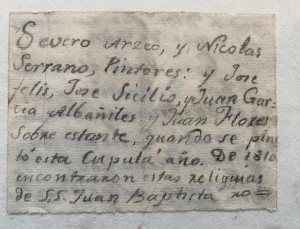 Severo Arzeo, y, Nicolas
Serrano, Pintores: y Jose
felis, Jose Sicilia, y Juan Gar-
cia Albañiles y Juan Flores
Sobre estante, quando se pin
tó esta Cupula año. De 1810
encontraron estas religuias
de S,S. Juan Baptista